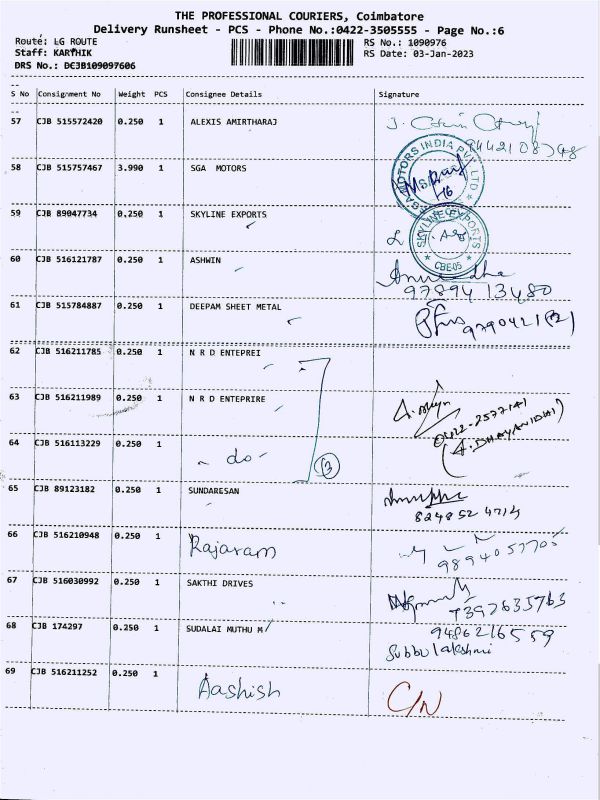 THE PROFESSIONAL COURIERS, Coimbatore
Delivery Runsheet - PCS - Phone No.:0422-3505555 - Page No.:6
Route: LG ROUTE
RS No.: 1090976
Staff: KARTHIK
RS Date: 03-Jan-2023
DRS No.: DCJB109097606
S No Consignment No Weight PCS Consignee Details Signature
57 CJB 515572420 0.250 1 ALEXIS AMIRTHARAJ
9442108748
58 CJB 515757467 3.990 1 SGA MOTORS
SGA MOTORS INDIA PVT LTD
59 CJB 89047734 0.250 1 SKYLINE EXPORTS
SKYLINE EXPORTS
CBE-05
60 CJB 516121787 0.250 1 ASHWIN
9789413480
61 CJB 515784887 0.250 1 DEEPAM SHEET METAL
62 CJB 516211785 0.250 1 N R D ENTEPREI
63 CJB 516211989 0.250 1 N R D ENTEPRIRE
0422-2577141
(A. DHAYANIDHI)
64 CJB 516113229 0.250 1 - do -
3
65 CJB 89123182 0.250 1 SUNDARESAN
66 CJB 516210948 0.250 1 Rajaram
67 CJB 516030992 0.250 1 SAKTHI DRIVES
7397635763
68 CJB 174297 0.250 1 SUDALAI MUTHU M
9486216559
Subbulakshmi
69 CJB 516211252 0.250 1 Aashish
C/N